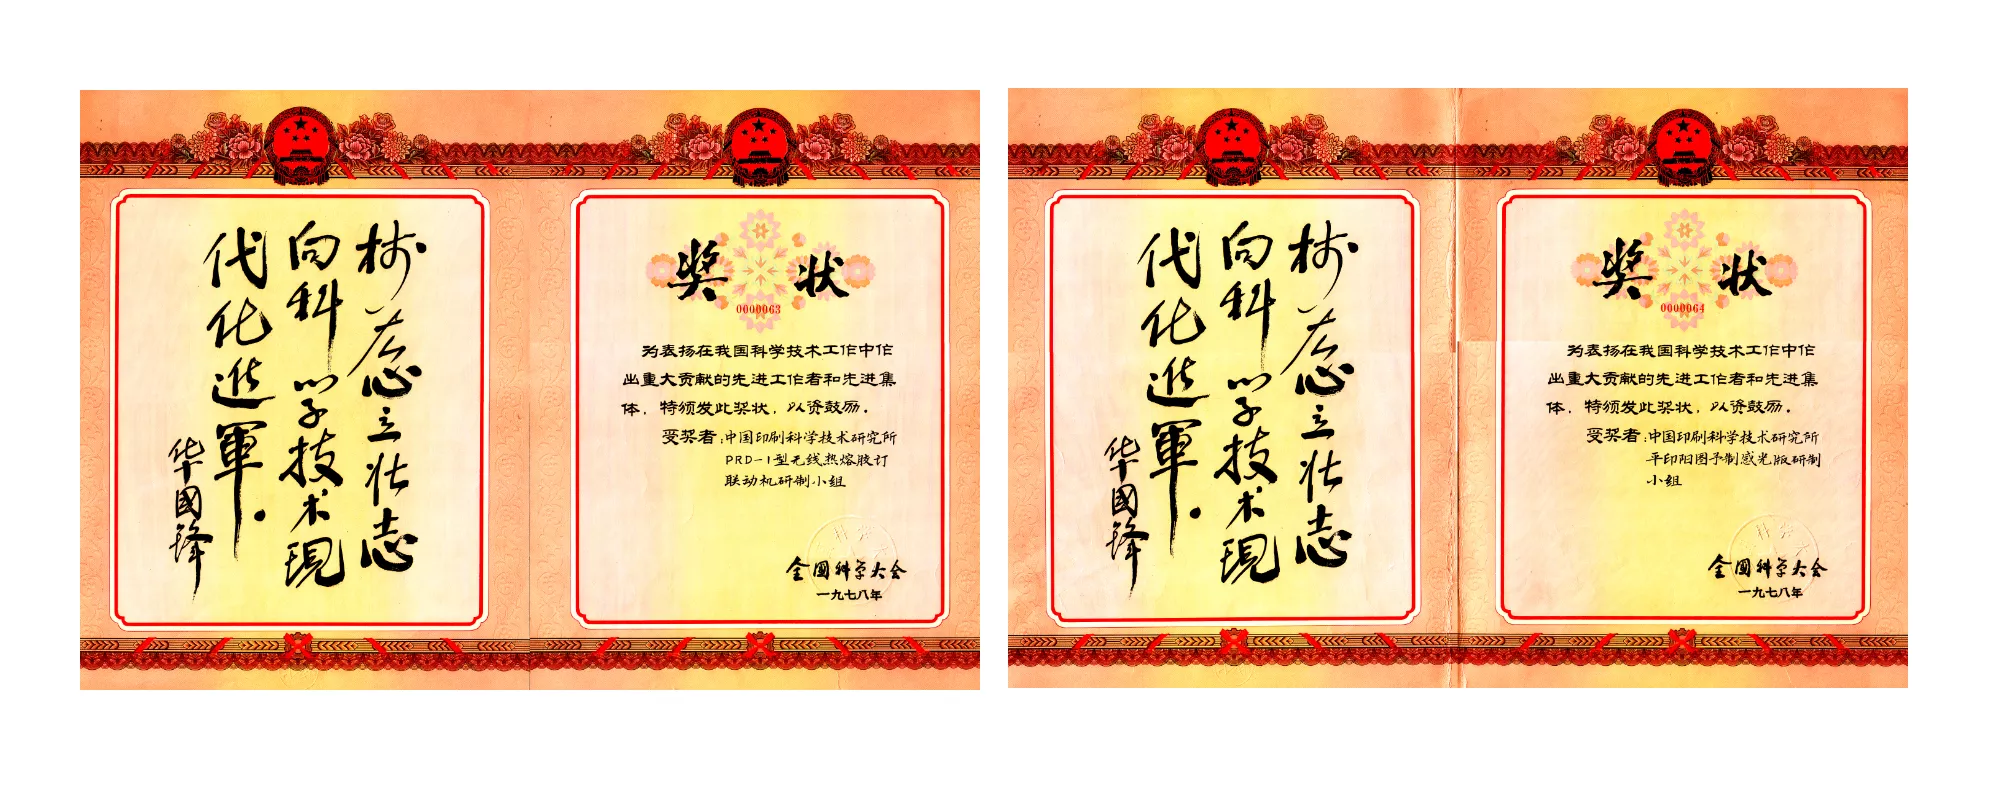 树雄心立壮志
向科学技术现
代化进軍。
华國锋
奖状
0000063
为表扬在我国科学技术工作中作
出重大贡献的先进工作者和先进集
体，特颁发此奖状，以资鼓励。
受奖者：中国印刷科学技术研究所
PRD-1型无线热熔胶订
联动机研制小组
全国科学大会
一九七八年
树雄心立壮志
向科学技术现
代化进軍。
华國锋
奖状
0000064
为表扬在我国科学技术工作中作
出重大贡献的先进工作者和先进集
体，特颁发此奖状，以资鼓励。
受奖者：中国印刷科学技术研究所
平印阳图予制感光版研制
小组
全国科学大会
一九七八年